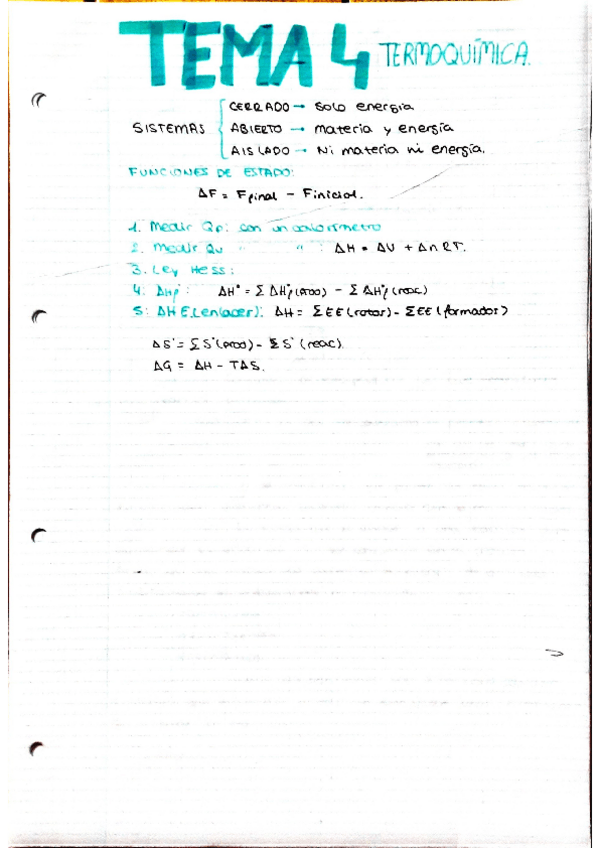 TEMA 4 TERMOQUÍMICA.
CERRADO → Solo energía
SISTEMAS ABIERTO → materia y energía
AISLADO → Ni materia ni energía.
FUNCIONES DE ESTADO:
ΔF = Ffinal - Finicial.
1. Medir Qp: con un calorímetro
2. Medir Qv " " : ΔH = ΔU + ΔnRT.
3. Ley Hess:
4: ΔHf°: ΔH° = Σ ΔH°f (prod) - Σ ΔH°f (reac)
5: ΔH E.(enlace): ΔH = ΣEE (rotos) - ΣEE (formados)
ΔS° = ΣS° (prod) - ΣS° (reac).
ΔG = ΔH - TΔS.